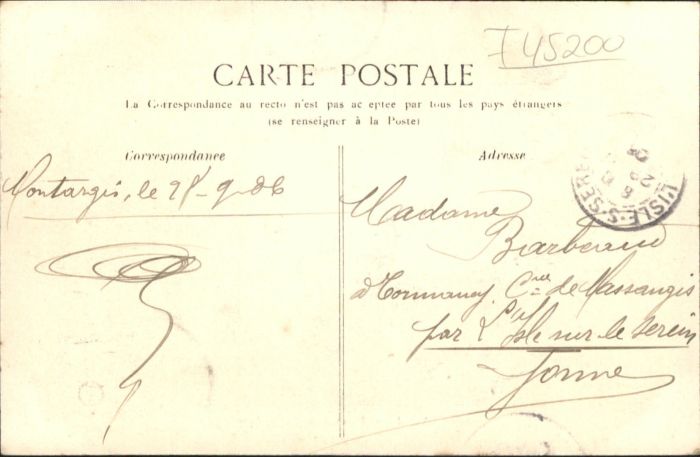 I 45200
CARTE POSTALE
La Correspondance au recto n'est pas acceptée par tous les pays étrangers
(se renseigner à la Poste)
Correspondance
Adresse
Montargis, le 28-9-06
L'ISLE-S-SEREIN
Madame
Barbeaud
à Tormancy, Cne de Massangis
par L'Isle sur le serein
Yonne